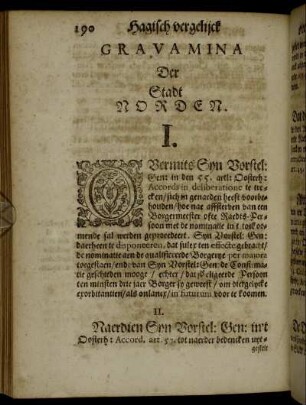 190 Hagisch vergelijck
GRAVAMINA
Der
Stadt
NORDEN.
I.
OVermits Syn Vorstel:
Gen: in den 55. artl: Oosterh:
Accords in deliberatione te tre-
cken / sich in genaeden heeft voorbe-
houden / hoe nae affsterben van een
Borgermeester ofte Raedts-Per-
soon met de nominatie in t toeko-
mende sal werden geprocedeert. Syn Vorstel: Gen:
daerhenen te disponeren, dat sulcx ten effecte gebracht /
de nominatie aen de qualificeerde Borgerye per majora
toegestaen / ende van Syn Vorstel: Gen: de Confirma-
tie geschieden mooge / echter / dat so eligeerde Persoon
ten minsten drie jaer Borger sy geweest / om diergelijcke
exorbitantien / als onlanx / in futurum voor te koomen.
II.
Naerdien Syn Vorstel: Gen: in't
Oosterh: Accord. art. 57. tot naerder bedencken uyt-
gestelt